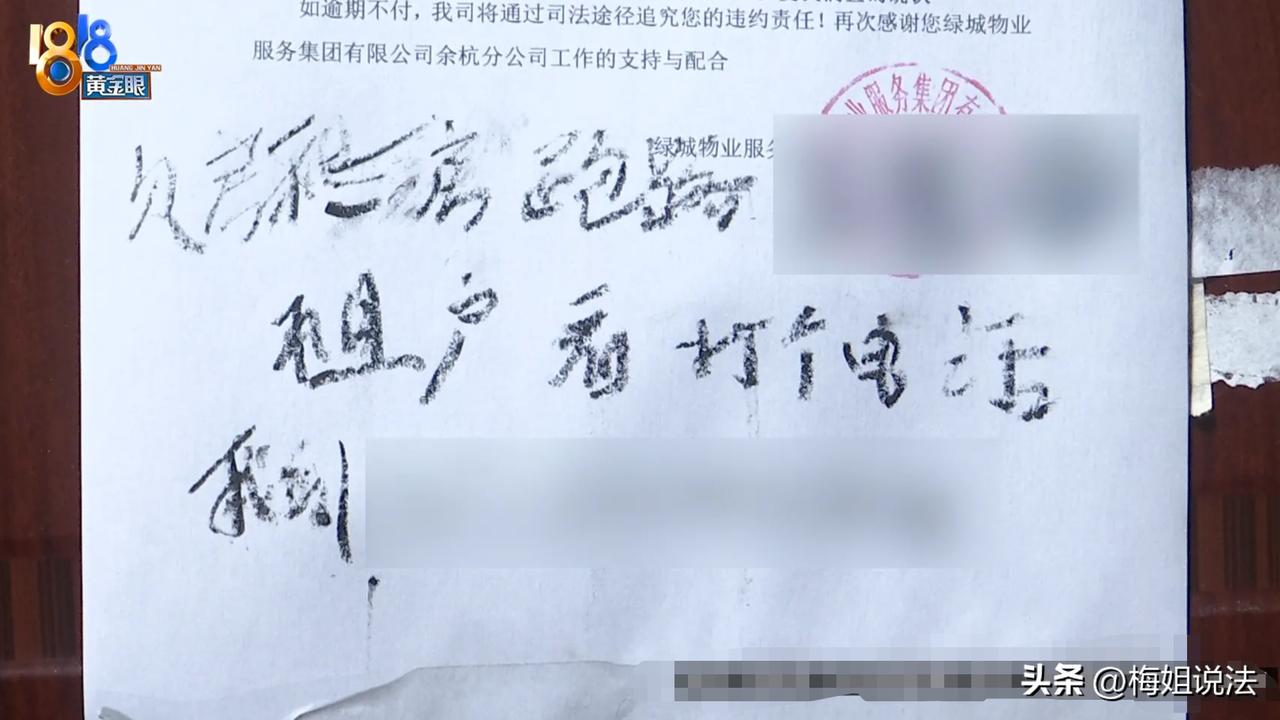 如逾期不付，我司将通过司法途径追究您的违约责任！再次感谢您绿城物业
服务集团有限公司余杭分公司工作的支持与配合
1818
HUANG JIN YAN
黄金眼
业服务集团有
绿城物业服务
跑路
租户看打个电话
头条 @梅姐说法